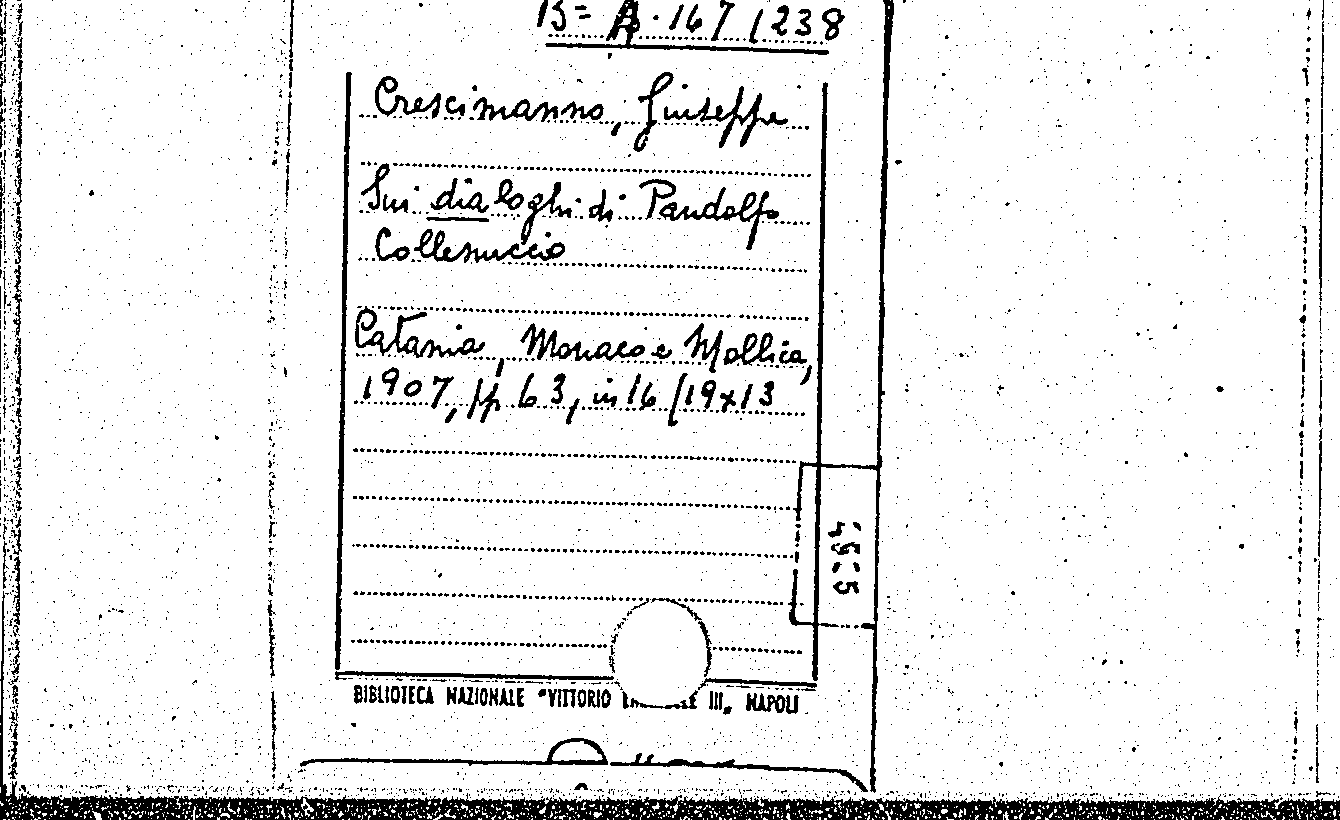 B= A·167 (238
Crescimanno, Giuseppe
Sui dialoghi di Pandolfo
Collenuccio
Catania, Monaco e Mollica,
1907, pp 63, in 16 (19x13
BIBLIOTECA NAZIONALE "VITTORIO III„ NAPOLI